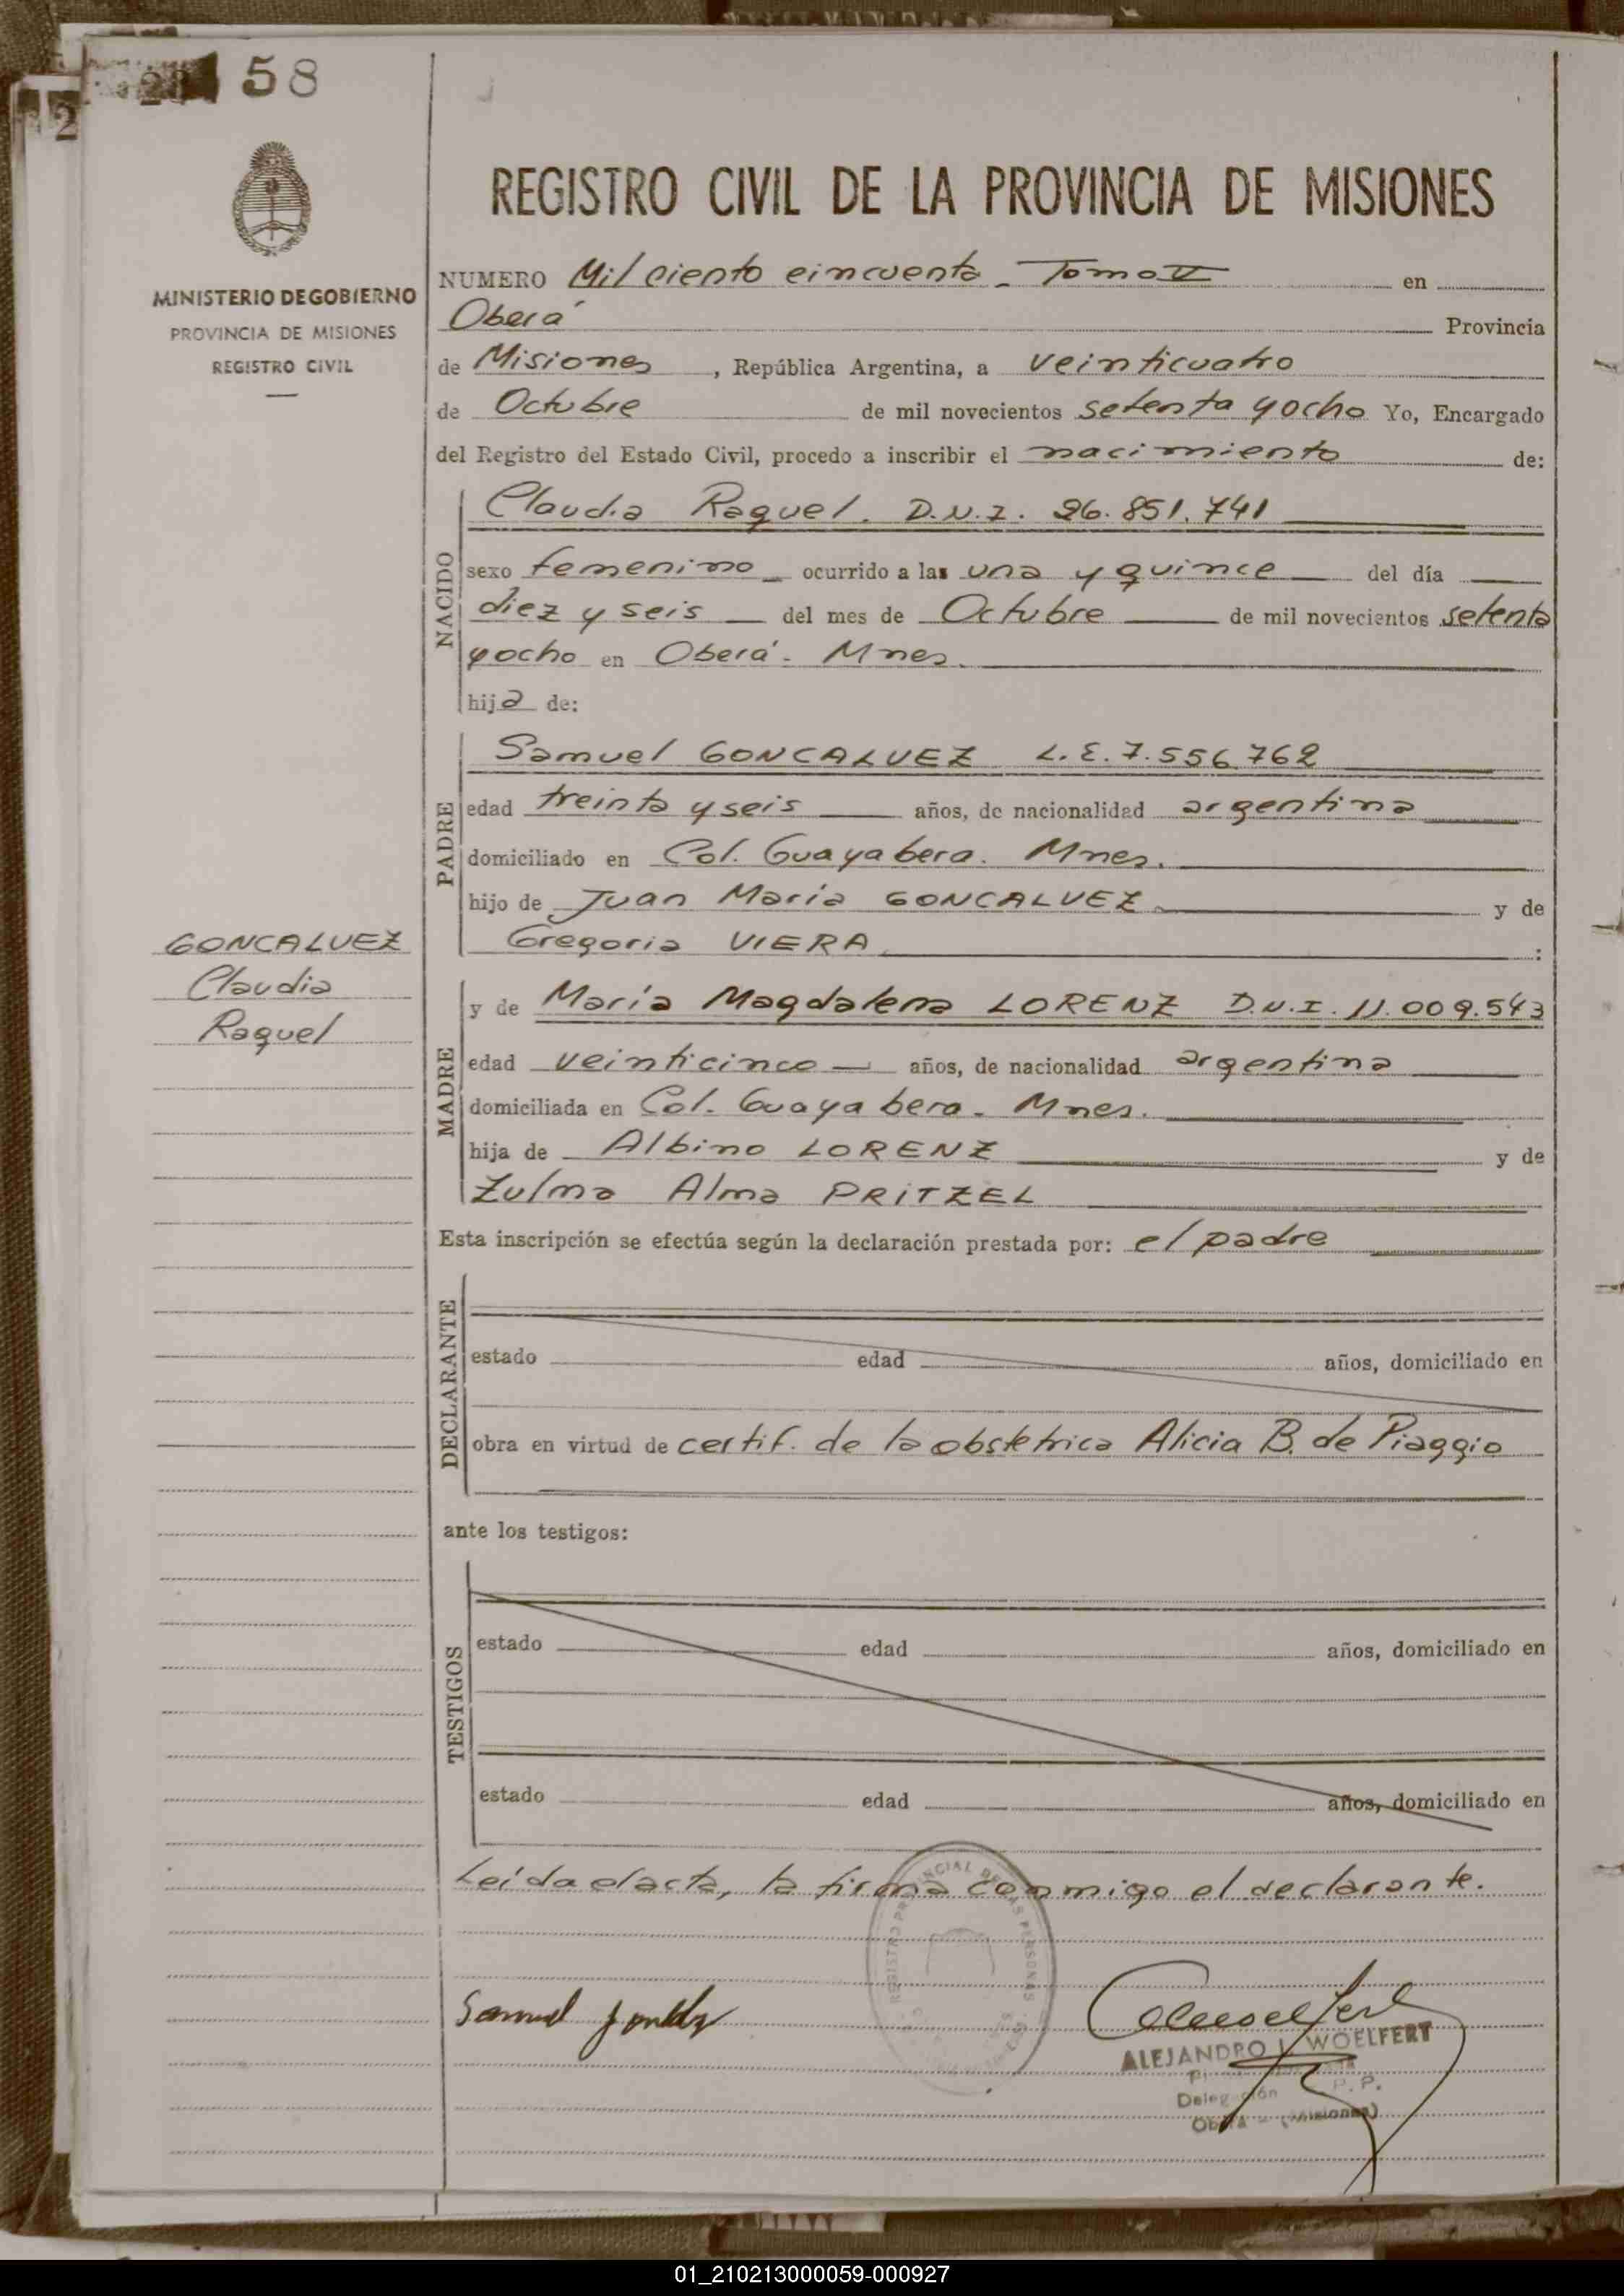 58
2
MINISTERIO DE GOBIERNO
PROVINCIA DE MISIONES
REGISTRO CIVIL
REGISTRO CIVIL DE LA PROVINCIA DE MISIONES
NUMERO Mil ciento cincuenta - Tomo VI en
Oberá Provincia
de Misiones, República Argentina, a veinticuatro
de Octubre de mil novecientos setenta y ocho Yo, Encargado
del Registro del Estado Civil, procedo a inscribir el nacimiento de:
NACIDO
Claudia Raquel. D.N.I. 26.851.741
sexo femenino ocurrido a las una y quince del día
diez y seis del mes de Octubre de mil novecientos setenta
y ocho en Oberá - Mnes.
hija de:
PADRE
Samuel GONCALVEZ L.E. 7.556.762
edad treinta y seis años, de nacionalidad argentina
domiciliado en Col. Guayabera. Mnes.
hijo de Juan María GONCALVEZ y de
Gregoria VIERA :
GONCALVEZ
Claudia
Raquel
MADRE
y de María Magdalena LORENZ D.N.I. 11.009.543
edad veinticinco años, de nacionalidad argentina
domiciliada en Col. Guayabera - Mnes.
hija de Albino LORENZ y de
Zulma Alma PRITZEL
Esta inscripción se efectúa según la declaración prestada por: el padre
DECLARANTE
estado edad años, domiciliado en
obra en virtud de certif. de la obstetrica Alicia B. de Piaggio
ante los testigos:
TESTIGOS
estado edad años, domiciliado en
estado edad años, domiciliado en
Leída el acta, la firma conmigo el declarante.
REGISTRO PROVINCIAL DE LAS PERSONAS
Samuel
ALEJANDRO WOELFERT
Delegación P.P.
Oberá - (Misiones)
01_210213000059-000927